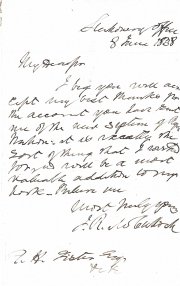 Stationery Office
8 June 1838
My dear Sir
I beg you will acc
ept my best thanks for
the account you have sent
me of the new edition of
it is exactly the
sort of thing that I wanted
for, & will be a most
valuable addition to my
book. Believe me
most truly yours
J. R. McCulloch
Esq